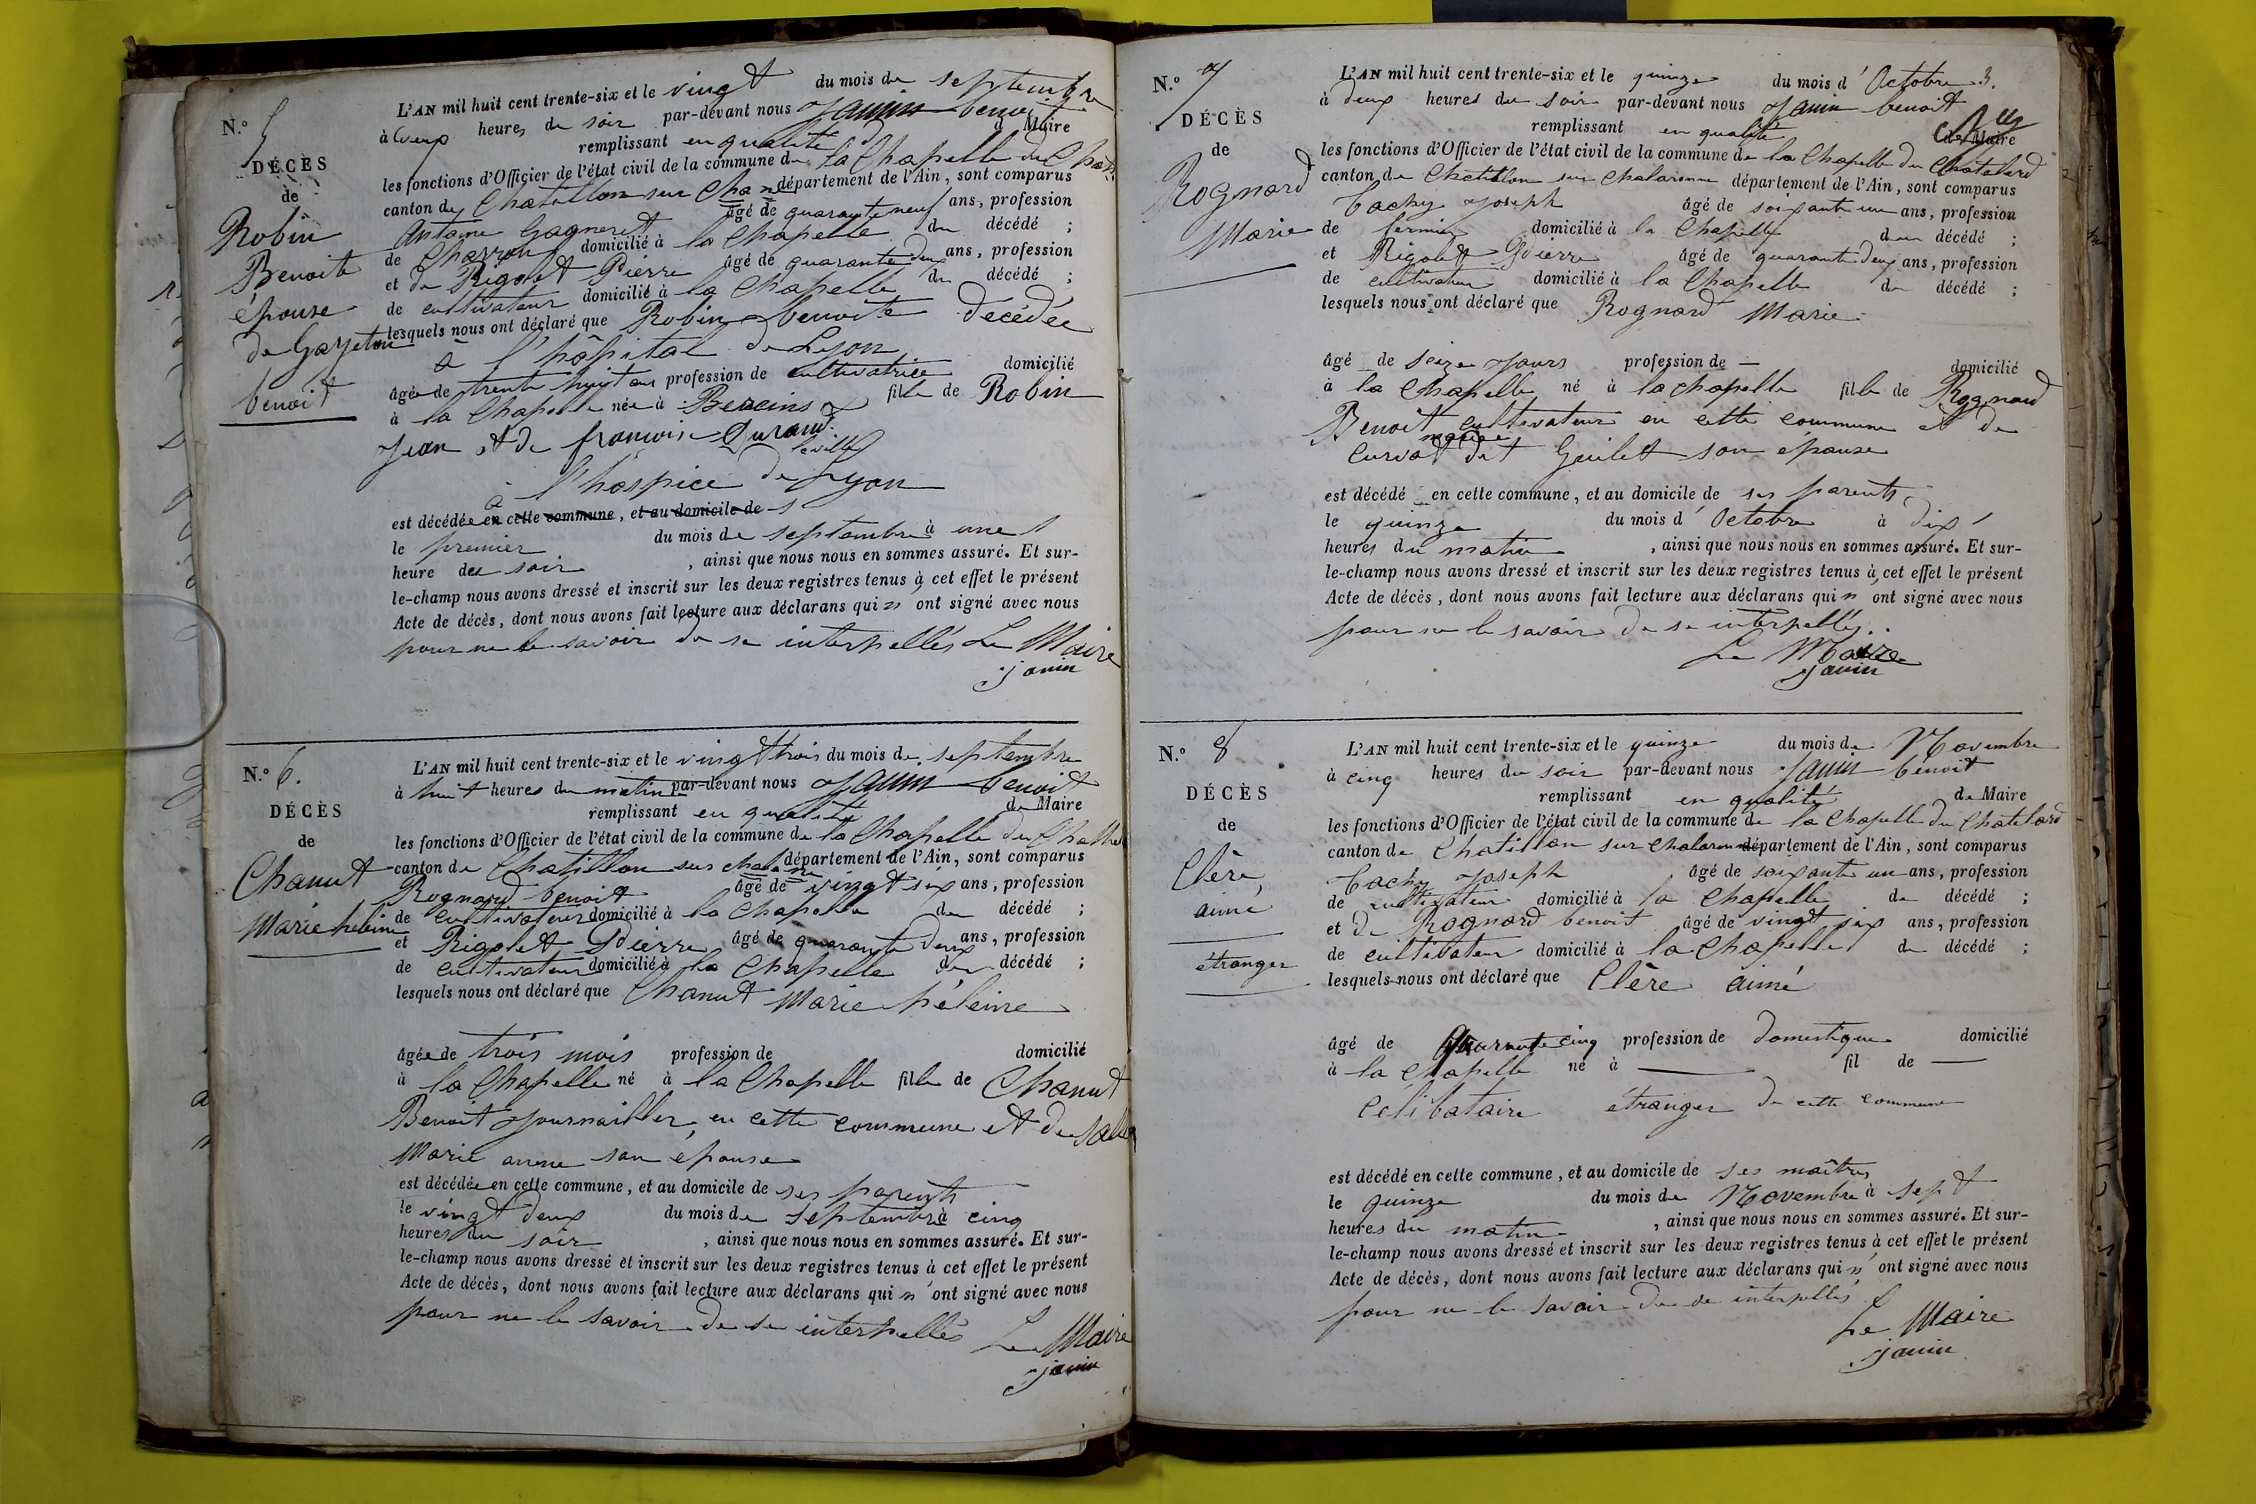 N.º 5
DÉCÈS
de
Robin
Benoite
épouse
de Gayeton
benoit
L'AN mil huit cent trente-six et le vingt du mois de septembre
à deux heures du soir par-devant nous Janin benoit
remplissant en qualité d Maire
les fonctions d'Officier de l'état civil de la commune de la Chapelle du
canton de Chatillon sur département de l'Ain, sont comparus
Antoine Gagneret âgé de quarante neuf ans, profession
de Charron domicilié à la Chapelle du décédé ;
et de Rigolet Pierre âgé de quarante deux ans, profession
de cultivateur domicilié à la Chapelle du décédé ;
lesquels nous ont déclaré que Robin benoite décédée
à l'hôpital de Lyon
âgée de trente huit ans profession de cultivatrice domicilié
à la Chapelle née à fille de Robin
Jean et de francoise Durand
à l'hospice de la ville Lyon
est décédée en cette commune, et au domicile de
le premier du mois de septembre à une
heure du soir , ainsi que nous nous en sommes assuré. Et sur-
le-champ nous avons dressé et inscrit sur les deux registres tenus à cet effet le présent
Acte de décès, dont nous avons fait lecture aux déclarans qui n ont signé avec nous
pour ne le savoir de se interpellés Le Maire
janin
N.º 6.
DÉCÈS
de
Chanut
Marie héleine
L'AN mil huit cent trente-six et le vingt trois du mois de septembre
à huit heures du matin par-devant nous Janin benoit
remplissant en qualité de Maire
les fonctions d'Officier de l'état civil de la commune de la Chapelle du
canton de Chatillon sur département de l'Ain, sont comparus
Rognard benoit âgé de vingt six ans, profession
de cultivateur domicilié à la Chapelle du décédé ;
et Rigolet Pierre âgé de quarante deux ans, profession
de cultivateur domicilié à la Chapelle du décédé ;
lesquels nous ont déclaré que Chanut Marie héleine
âgée de trois mois profession de domicilié
à la Chapelle né à la Chapelle fille de Chanut
Benoit journaillier en cette commune et de
Marie anne son épouse
est décédée en cette commune, et au domicile de ses parents
le vingt deux du mois de septembre à cinq
heures du soir , ainsi que nous nous en sommes assuré. Et sur-
le-champ nous avons dressé et inscrit sur les deux registres tenus à cet effet le présent
Acte de décès, dont nous avons fait lecture aux déclarans qui n' ont signé avec nous
pour ne le savoir de se interpellés Le Maire
janin
N.º 7
DÉCÈS
de
Rognard
Marie
L'AN mil huit cent trente-six et le quinze du mois d' Octobre 3.
à deux heures du soir par-devant nous Janin benoit
remplissant en qualité de Maire
les fonctions d'Officier de l'état civil de la commune de la Chapelle du Chatelard
canton de Chatillon sur Chalaronne département de l'Ain, sont comparus
Tachy Joseph âgé de soixante un ans, profession
de fermier domicilié à la Chapelle du décédé ;
et Rigolet Pierre âgé de quarante deux ans, profession
de cultivateur domicilié à la Chapelle du décédé ;
lesquels nous ont déclaré que Rognard Marie
âgé de seize jours profession de — domicilié
à la Chapelle né à la chapelle fille de Rognard
Benoit cultivateur en cette commune et de
Curvat marie dit Guilet son épouse
est décédé en cette commune, et au domicile de ses parents
le quinze du mois d' Octobre à dix
heures du matin , ainsi que nous nous en sommes assuré. Et sur-
le-champ nous avons dressé et inscrit sur les deux registres tenus à cet effet le présent
Acte de décès, dont nous avons fait lecture aux déclarans qui n ont signé avec nous
pour ne le savoir de se interpellés.
Le Maire
janin
N.º 8
DÉCÈS
de
Clère
aimé
étranger
L'AN mil huit cent trente-six et le quinze du mois de Novembre
à cinq heures du soir par-devant nous Janin benoit
remplissant en qualité de Maire
les fonctions d'Officier de l'état civil de la commune de la Chapelle du Chatelard
canton de Chatillon sur Chalaronne département de l'Ain, sont comparus
Tachy Joseph âgé de soixante un ans, profession
de cultivateur domicilié à la Chapelle du décédé ;
et de Rognard benoit âgé de vingt six ans, profession
de cultivateur domicilié à la Chapelle du décédé ;
lesquels nous ont déclaré que Clère aimé
âgé de quarante cinq profession de domestique domicilié
à la Chapelle né à — fil de —
Célibataire étranger de cette commune
est décédé en cette commune, et au domicile de ses maîtres
le quinze du mois de Novembre à sept
heures du matin , ainsi que nous nous en sommes assuré. Et sur-
le-champ nous avons dressé et inscrit sur les deux registres tenus à cet effet le présent
Acte de décès, dont nous avons fait lecture aux déclarans qui n' ont signé avec nous
pour ne le savoir de se interpellés
Le Maire
janin